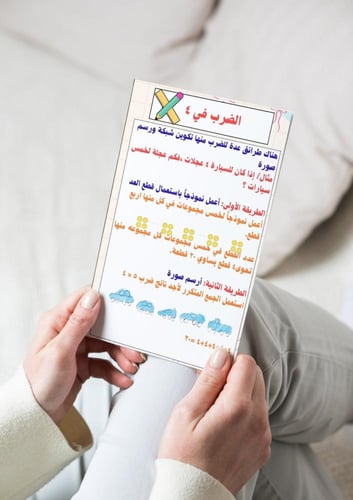 الضرب في ٤
هناك طرائق عدة للضرب منها تكوين شبكة ورسم
صورة
مثال/ إذا كان للسيارة ٤ عجلات ،فكم عجلة لخمس
سيارات ؟
الطريقة الأولى: أعمل نموذجاً باستعمال قطع العد
أعمل نموذجاً لخمس مجموعات في كل منها أربع
قطع.
عدد القطع في خمس مجموعات كل مجموعه منها
نحوى٤ قطع يساوي ٢٠ قطعة.
الطريقة الثانية: أرسم صورة
أستعمل الجمع المتكرر لأجد ناتج ضرب ٥ × ٤
٤+٤+٤+٤+٤=٢٠